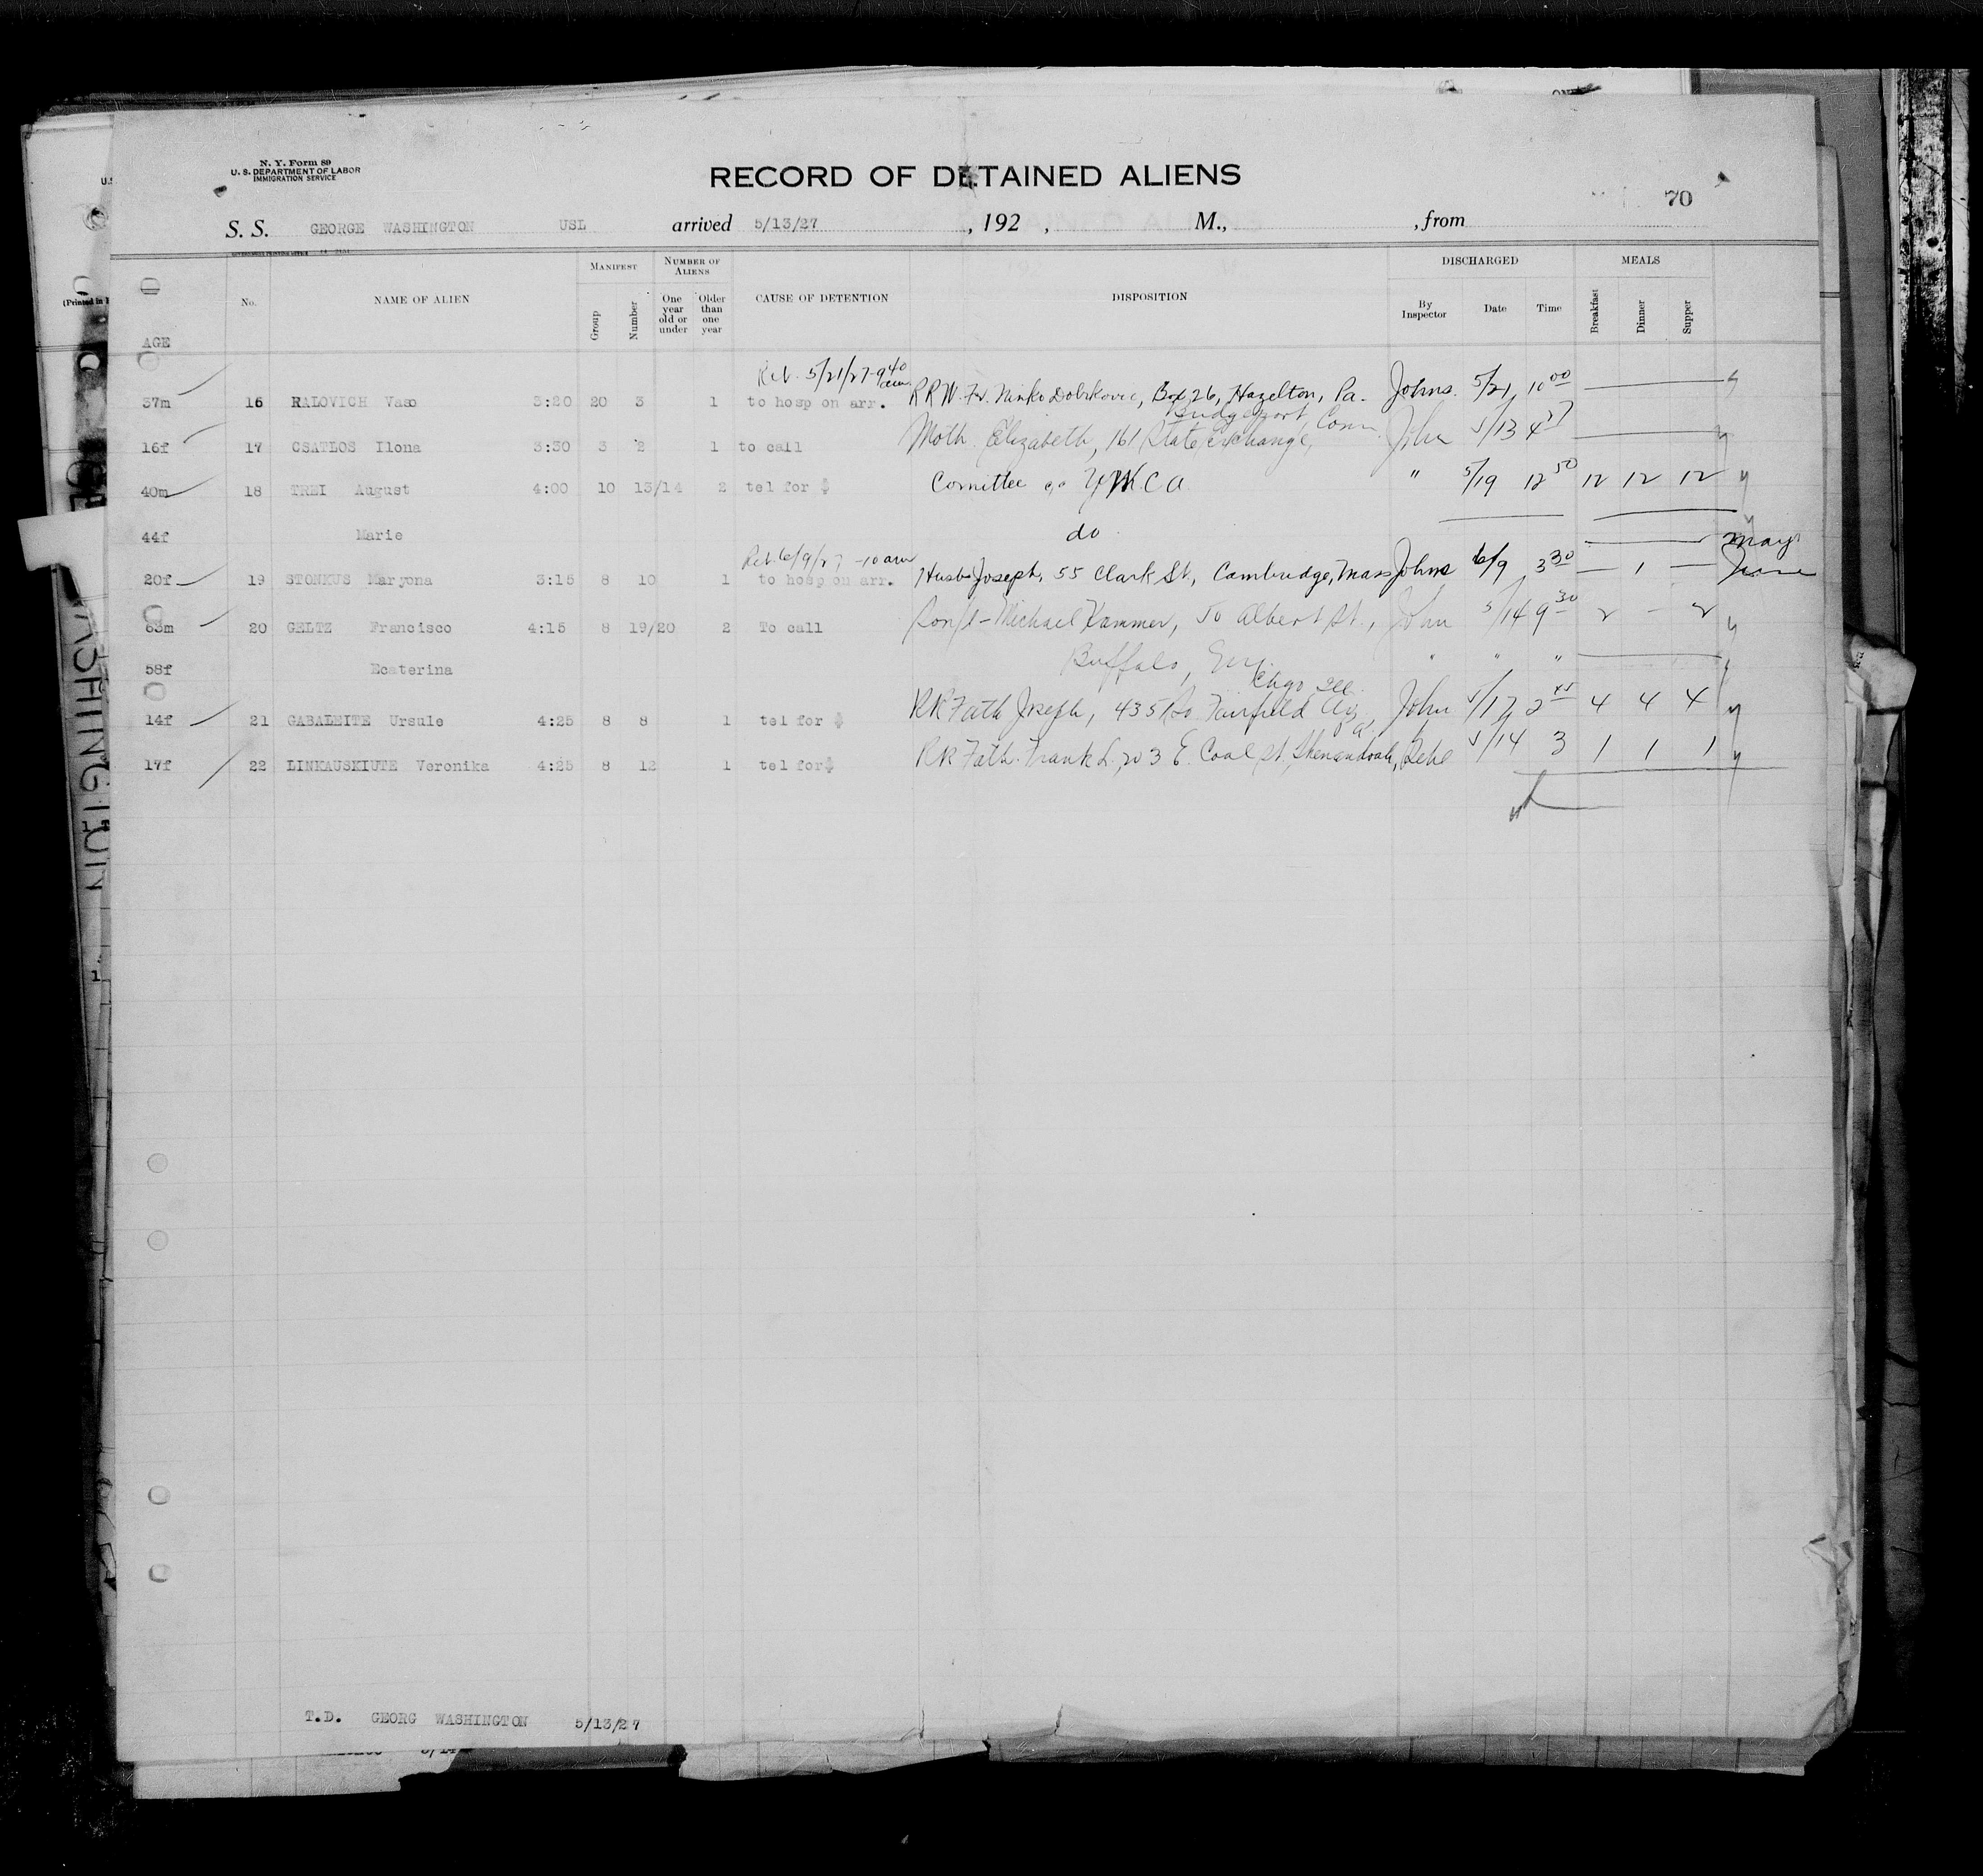 N. Y. Form 89
U. S. DEPARTMENT OF LABOR
IMMIGRATION SERVICE
RECORD OF DETAINED ALIENS
70
S. S. GEORGE WASHINGTON USL arrived 5/13/27 , 192 , M., , from
AGE No. NAME OF ALIEN MANIFEST Group Number NUMBER OF ALIENS One year old or under Older than one year CAUSE OF DETENTION DISPOSITION DISCHARGED By Inspector Date Time MEALS Breakfast Dinner Supper
5/21/27 - 9 40 am
37m 16 RALOVICH Vaso 3:20 20 3 1 to hosp on arr. RRW. Fr. Ninko Dobrkovic, Box 26, Hazelton, Pa. Johns. 5/21 10 00
Bridgeport, Conn
16f 17 CSATLOS Ilona 3:30 3 2 1 to call Moth Elizabeth, 161 State Exchange, John 5/13 4
40m 18 TREI August 4:00 10 13/14 2 tel for $ Comittee Y W C A " 5/19 12 50 12 12 12
44f Marie do May
6/9/27 - 10 am
20f 19 STONKUS Maryona 3:15 8 10 1 to hosp on arr. Husb Joseph, 55 Clark St, Cambridge, Mass Johns 6/9 3 30 — 1 — June
63m 20 GELTZ Francisco 4:15 8 19/20 2 To call Son/l - Michael Kammer, 50 Albert St., John 5/14 9 30 2 - 2
58f Ecaterina Buffalo, " " "
Chgo Ill
14f 21 GABALEITE Ursule 4:25 8 8 1 tel for $ RR Fath Joseph, 4351 So Fairfield Av, John 5/17 2 45 4 4 4
Pa
17f 22 LINKAUSKIUTE Veronika 4:25 8 12 1 tel for $ RR Fath. Frank L. 203 E. Coal St. Shenandoah, 5/14 3 1 1 1
T.D. GEORG WASHINGTON 5/13/27